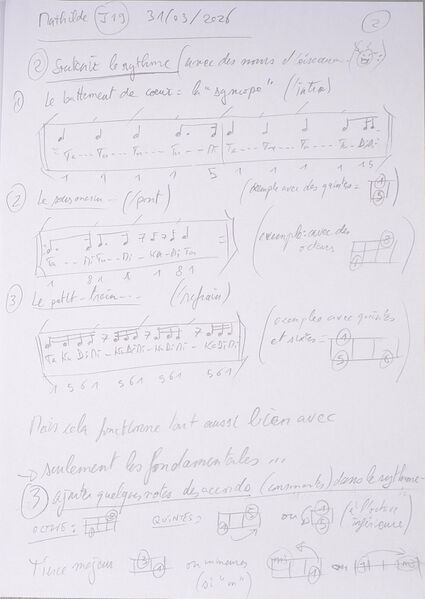 Mathilde J19 31/03/2026 2
2 Soutenir le rythme (avec des noms d'oiseaux
1 Le battement de cœur = la "syncope" (intro)
Ta --- Ta --- Ta --- Ta --- Di Ta --- Ta --- Ta --- Ta - DiDi
1 1 1 1 5 1 1 1 15
2 Le sous marin - (pont)
(exemple avec des quintes =
1
5
(exemple avec des octaves
1 8 1 8 1 8 1
3 Le petit train --- (refrain)
(exemples avec quintes et sixtes =
1
5 6
Ta Ka Di Mi - Ka Di Mi - Ka Di Mi - Ka Di Mi
1 5 6 1 5 6 1 5 6 1 5 6 1
Mais cela fonctionne tout aussi bien avec
→ seulement les fondamentales ...
3 ajouter quelques notes des accords (consonantes) dans le rythme
OCTAVE : QUINTES : ou (à l'octave inférieure)
Tierce majeure ou mineure (si "m") ou